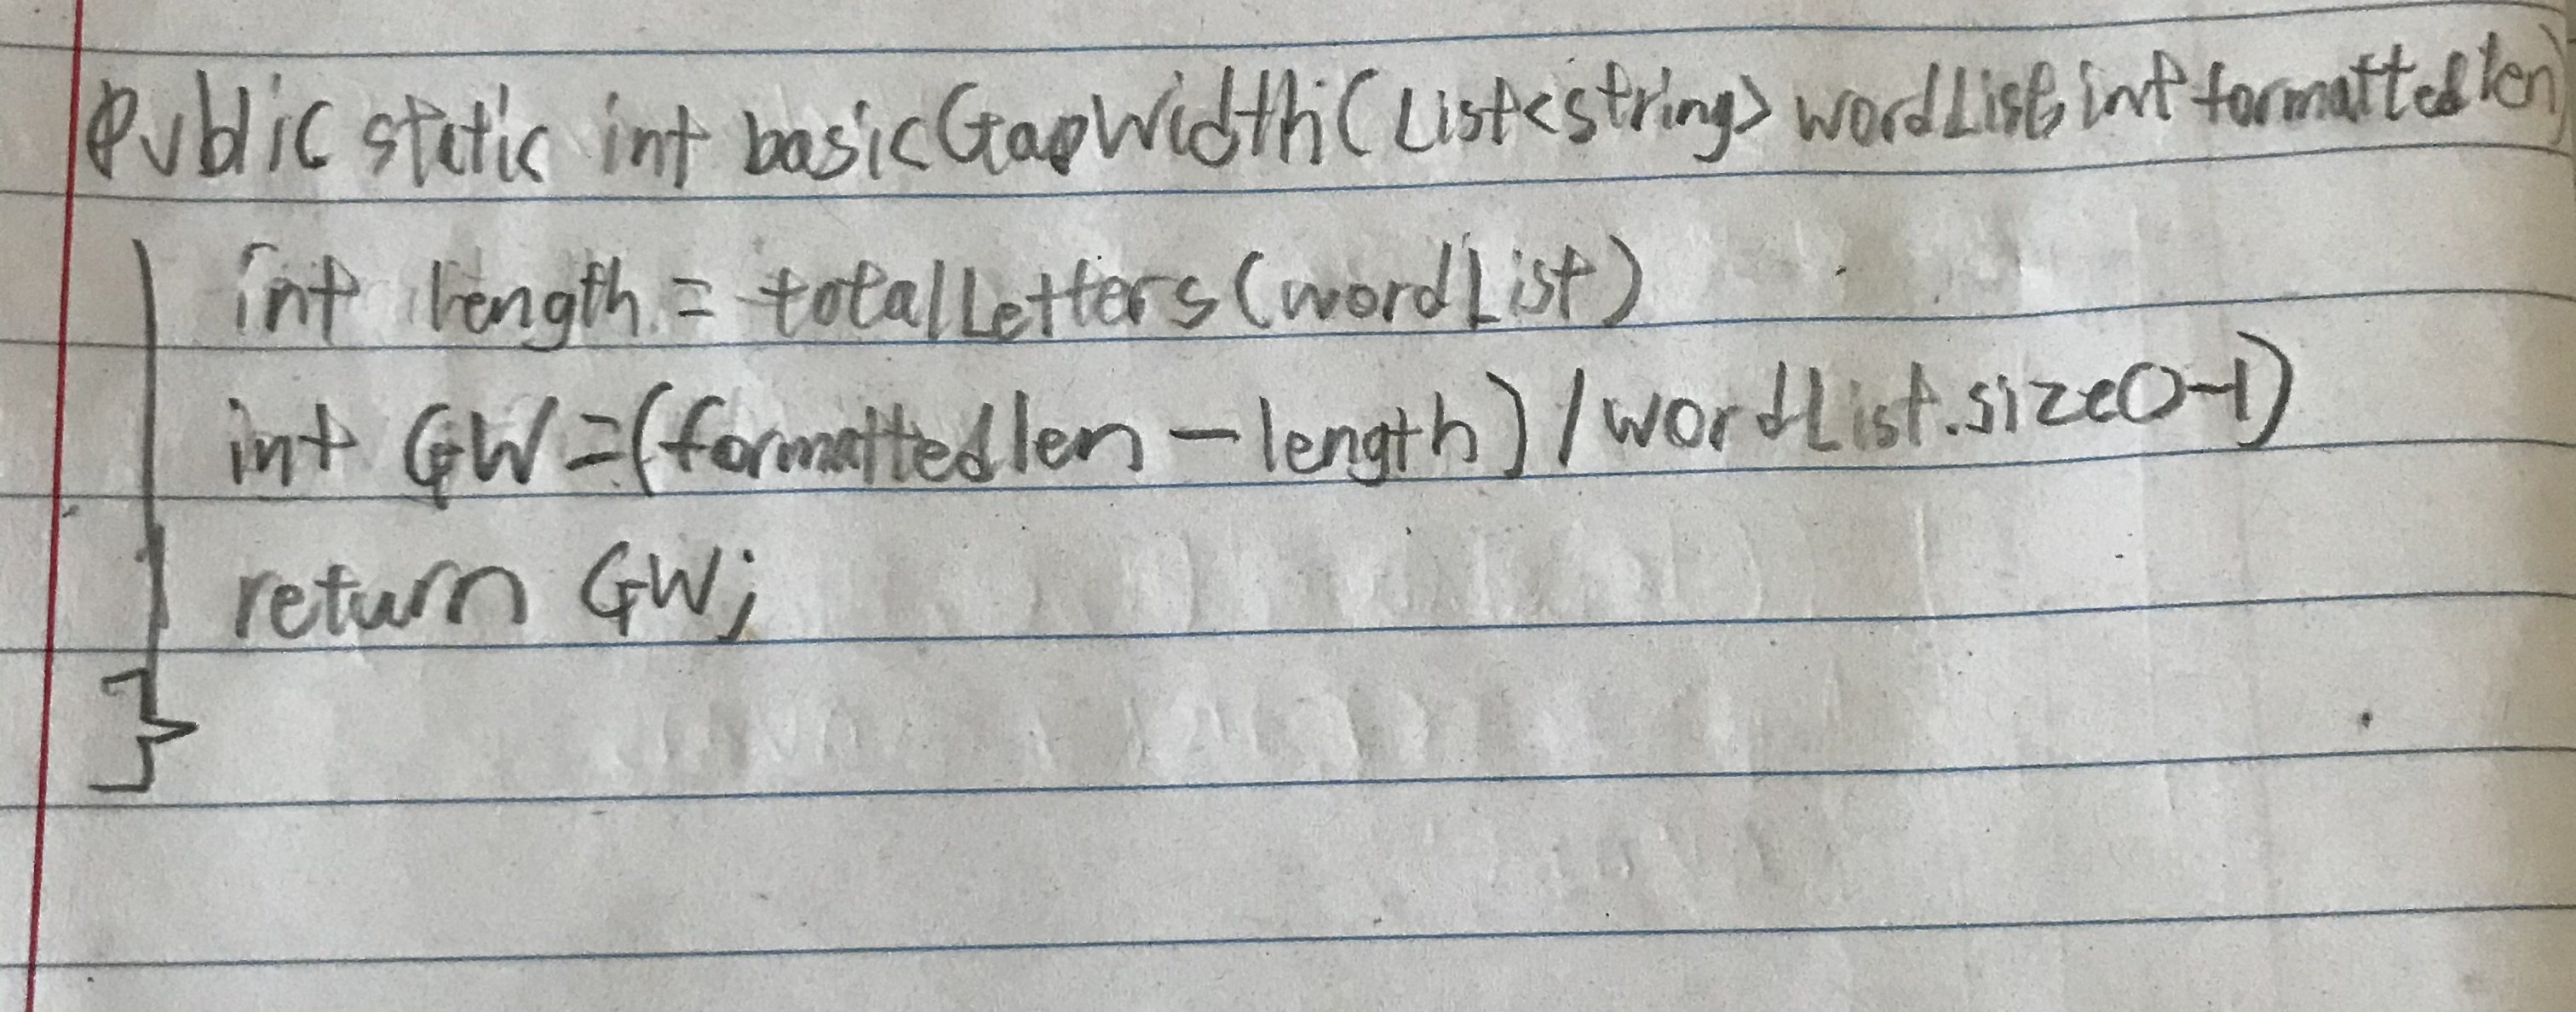 Public static int basicGapWidth(List<string> wordList, int formattedlen)
int length = totalLetters(wordList)
int GW=(formattedlen-length)/wordList.size()-1)
return GW;
}